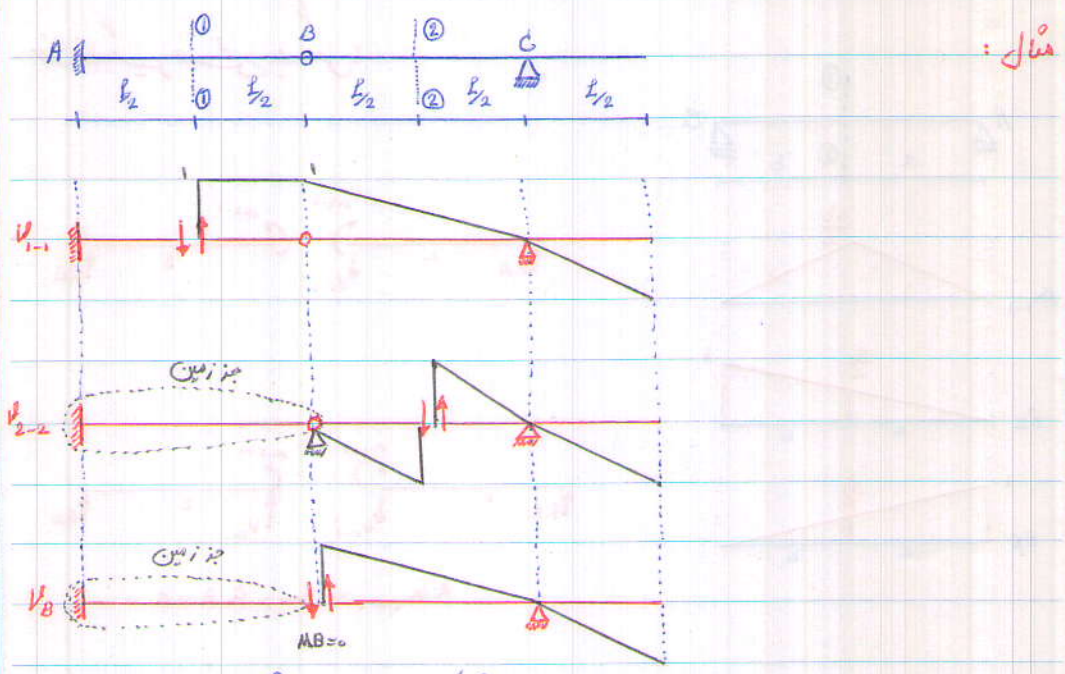 مثال :
① B ② C
A
L/2 ① L/2 L/2 ② L/2 L/2
1 1
V1-1
جز زمین
V2-2
جز زمین
VB
MB=0